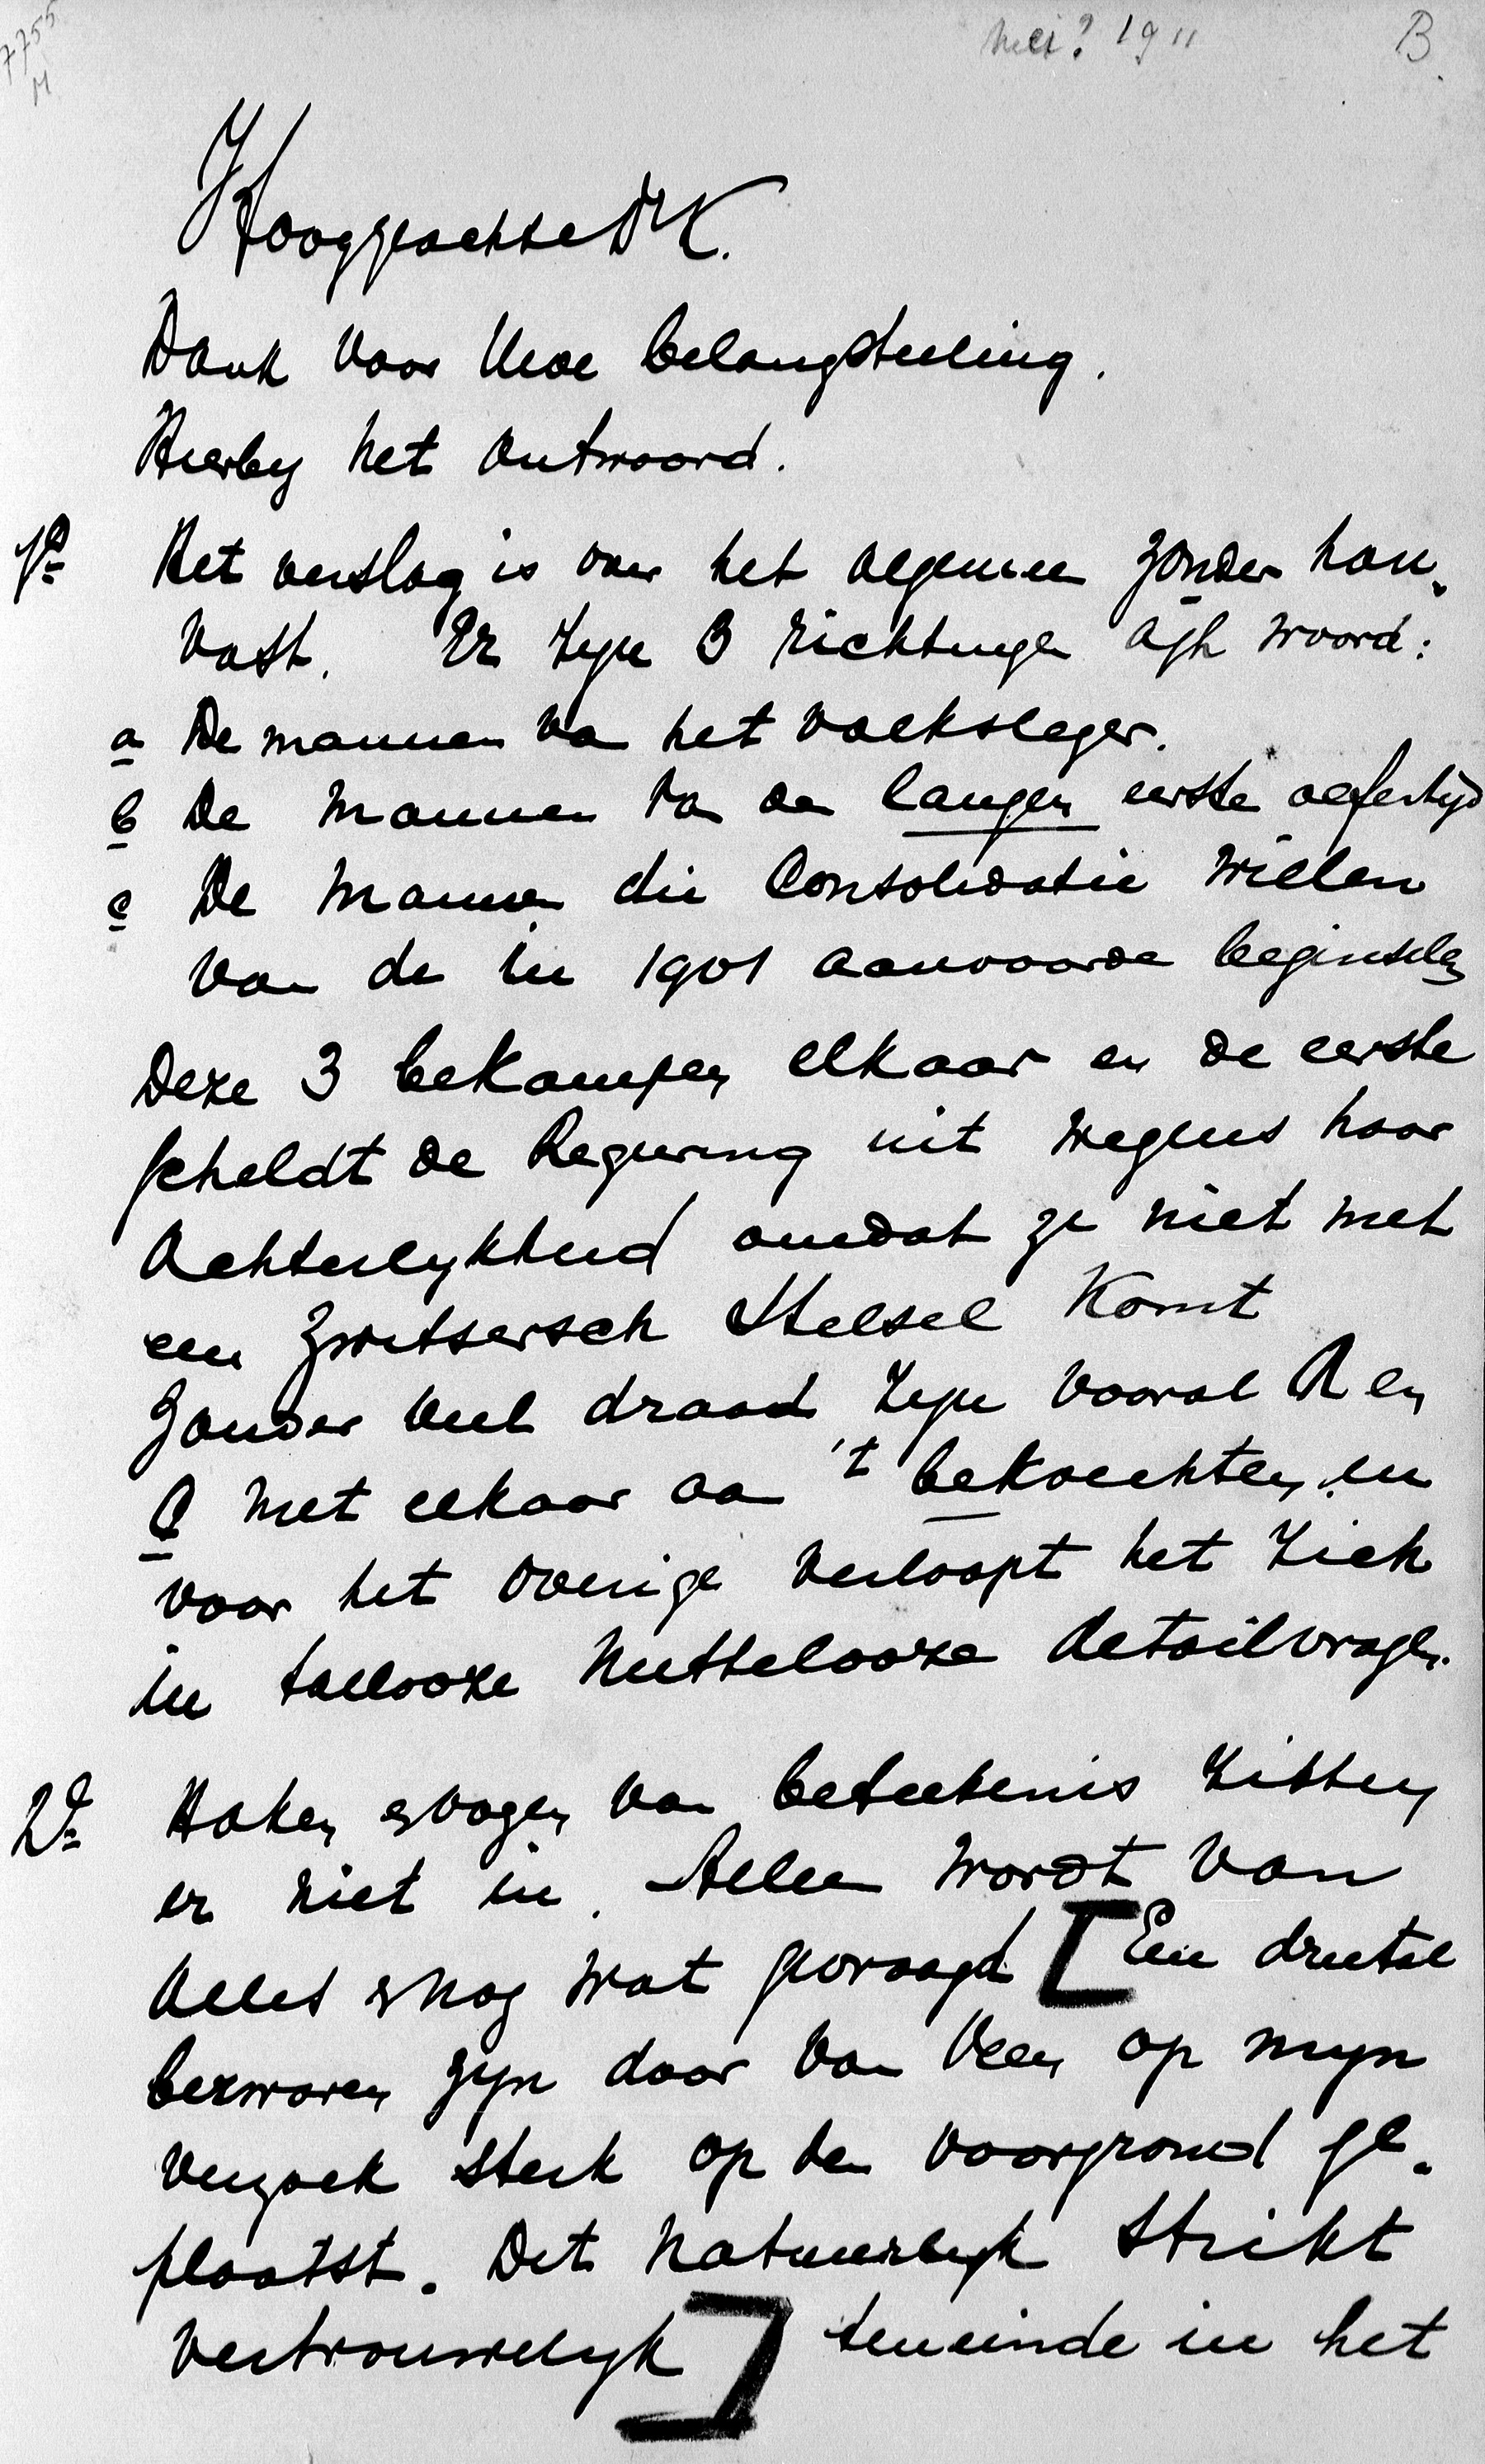 7755
M
mei? 1911 B.
Hooggeachte Dr K.
Dank voor Uwe belangstelling.
Hierby het antwoord.
1º Het verslag is over het algemeen zonder hou-
vast. Er zyn 3 richtingen aan woord:
a De mannen van het volksleger.
b De mannen van den langen eerste oefentijd
c De mannen die Consolidatie willen
van de in 1901 aanvaarde beginselen
Deze 3 bekampen elkaar en de eerste
scheldt de Regering uit wegens haar
Achterlykheid omdat ze niet met
een Zwitsersch Stelsel komt
Zonder veel draad zyn vooral A en
C met elkaar aan 't bekvechten, en
voor het overige verloopt het zich
in tallooze nuttelooze detailvragen.
2º Haken & oogen van beteekenis zitten
er niet in. Alleen wordt van
alles & nog wat gevraagd [Een drietal
bezwaren zyn door Van Veen op myn
verzoek sterk op den voorgrond ge-
plaatst. Dit natuurlyk strikt
vertrouwelyk] teneinde in het